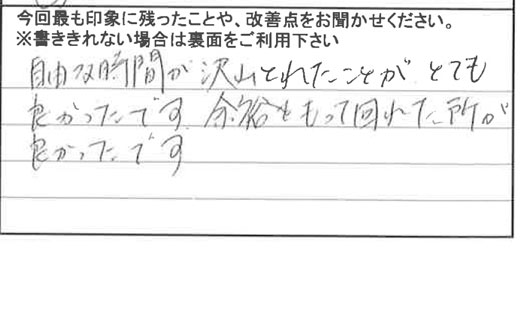 今回最も印象に残ったことや、改善点をお聞かせください。
※書ききれない場合は裏面をご利用下さい
自由な時間が沢山とれたことが とても
良かったです 余裕をもって回れた所が
良かったです